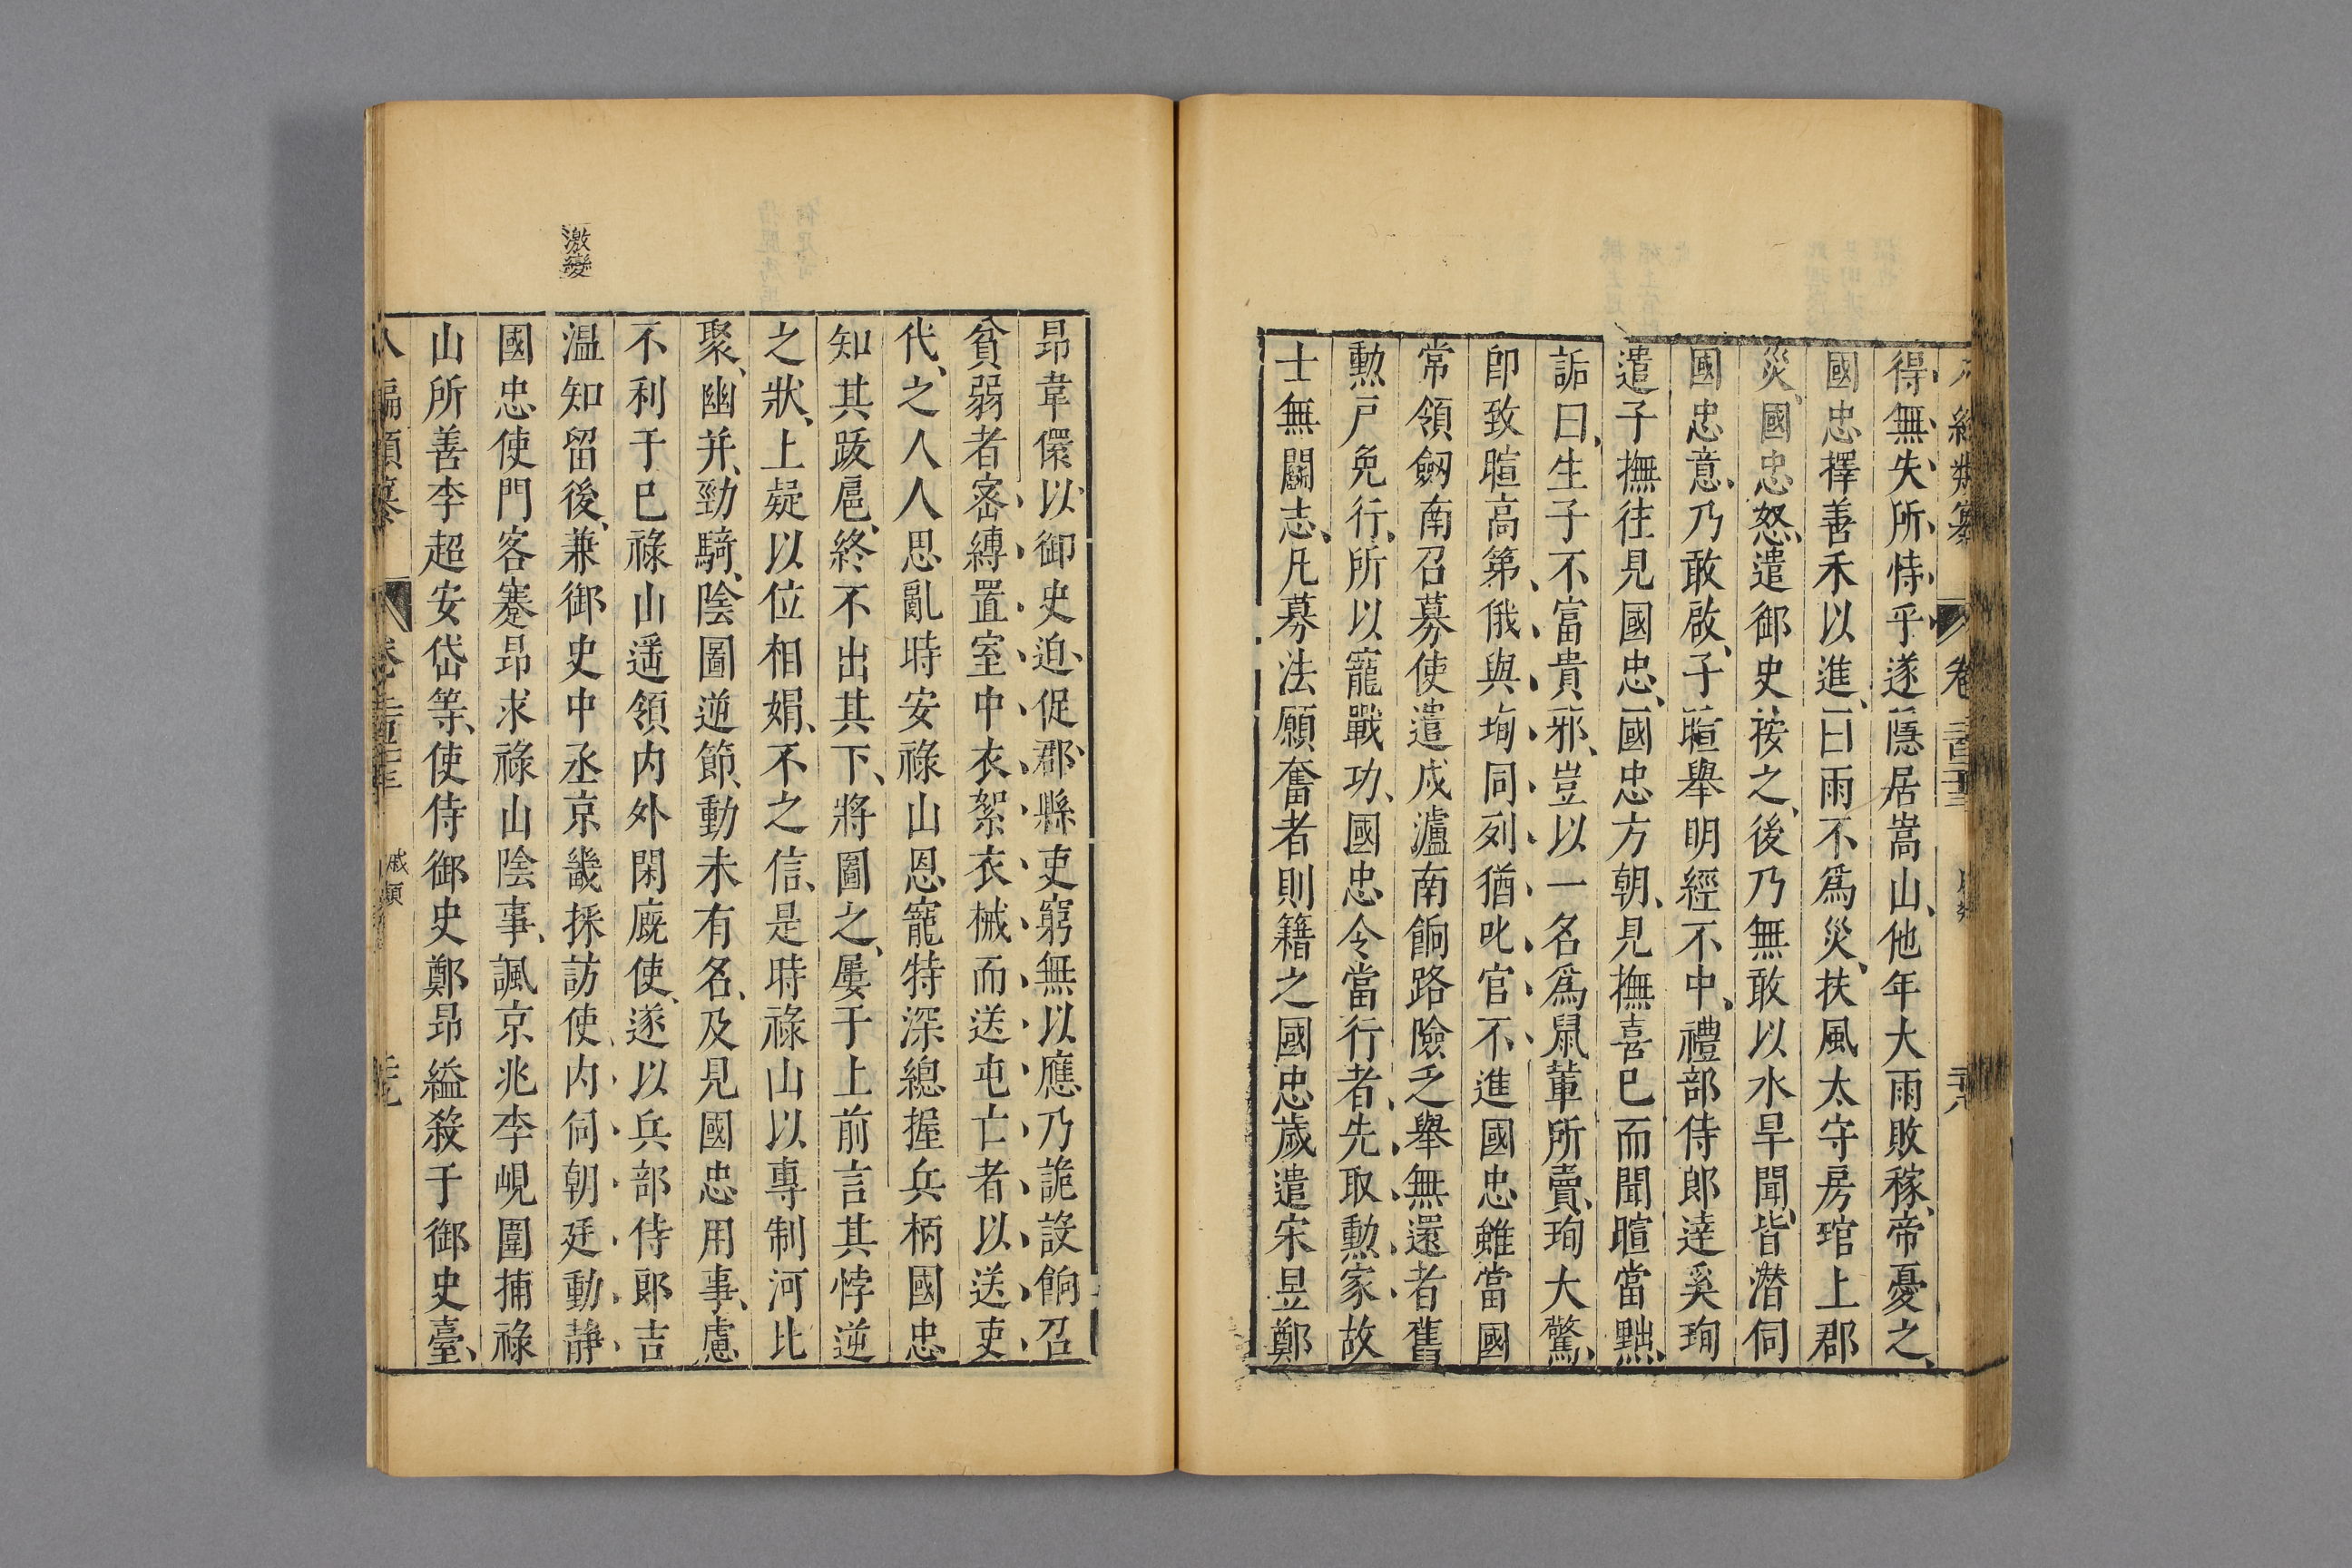 得無失所恃乎遂隱居嵩山他年大雨敗稼帝憂之
國忠擇善禾以進曰雨不爲災扶風太守房琯上郡
災國忠怒遣御史按之後乃無敢以水旱聞皆潛伺
國忠意乃敢啟子暄舉明經不中禮部侍郎達奚珣
遣子撫往見國忠國忠方朝見撫喜巳而聞暄當黜
詬曰生子不富貴邪豈以一名爲鼠軰所賣珣大驚
卽致暄高第俄與珣同列猶叱官不進國忠雖當國
常領劔南召募使遣戍瀘南餉路險乏舉無還者舊
勲戸免行所以寵戰功國忠令當行者先取勲家故
士無鬭志凡募法願奮者則籍之國忠歲遣宋昱鄭
昂韋儇以御史迫促郡縣吏窮無以應乃詭設餉召
貧弱者密縛置室中衣絮衣械而送屯亡者以送吏
代之人人思亂時安祿山恩寵特深總握兵柄國忠
知其跋扈終不出其下將圖之屢于上前言其悖逆
之狀上疑以位相娟不之信是時祿山以專制河北
聚幽并勁騎陰圖逆節動未有名及見國忠用事慮
不利于巳祿山遥領内外閑廐使遂以兵部侍郎吉
溫知留後兼御史中丞京畿採訪使内伺朝廷動静
國忠使門客蹇昂求祿山陰事諷京兆李峴圍捕祿
山所善李超安岱等使侍御史鄭昂縊殺于御史臺
激變